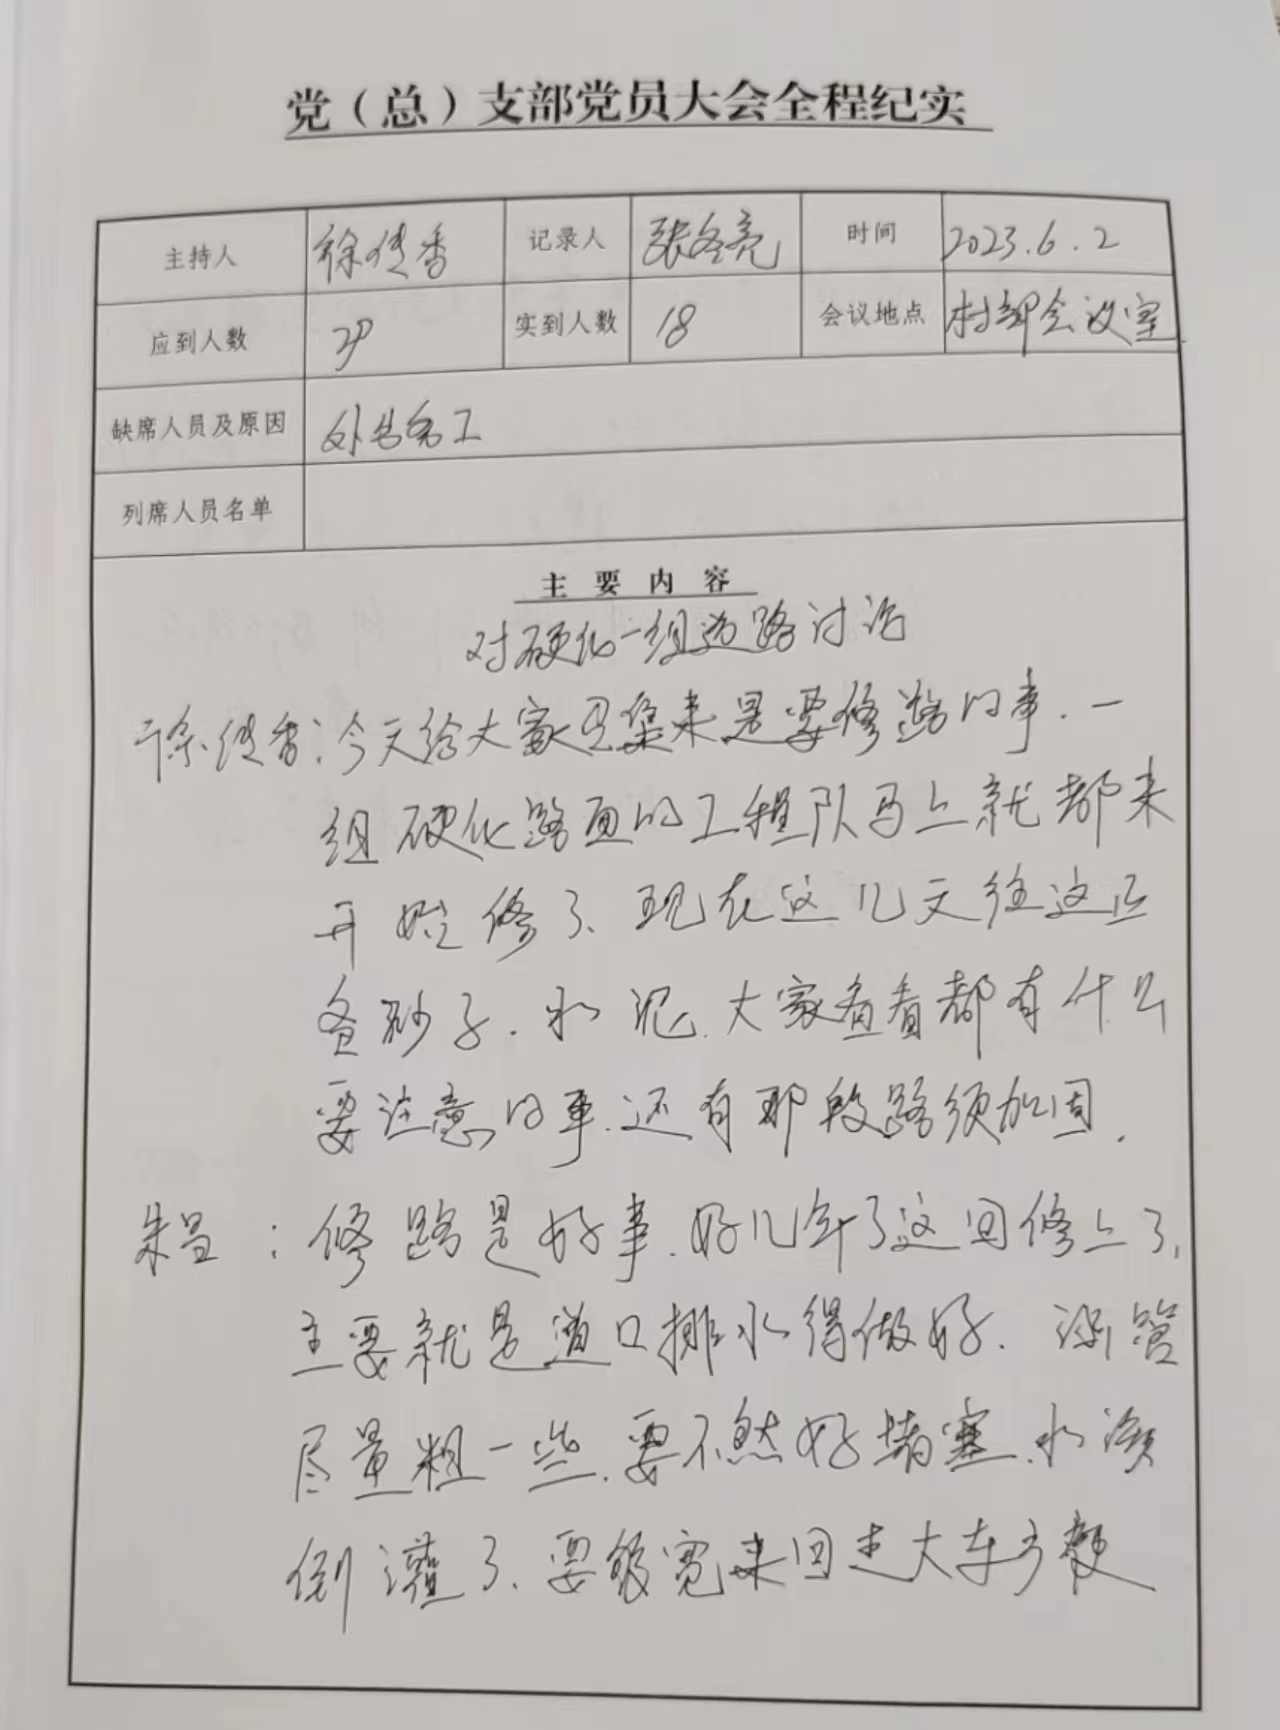 党（总）支部党员大会全程纪实
主持人 徐传香 记录人 张冬亮 时间 2023.6.2
应到人数 实到人数 18 会议地点 村部会议室
缺席人员及原因 外出务工
列席人员名单
主要内容
对硬化一组道路讨论
徐传香：今天给大家召集来是要修路的事.一
组硬化路面的工程队马上就都来
开始修了、现在这几天往这正
备砂子.水泥.大家看看都有什么
要注意的事.还有那段路须加固.
朱昌：修路是好事.好几年了这回修上了,
主要就是道口排水得做好.涵管
尽量粗一些.要不然好堵塞.水
倒灌了、要够宽来回走大车方便